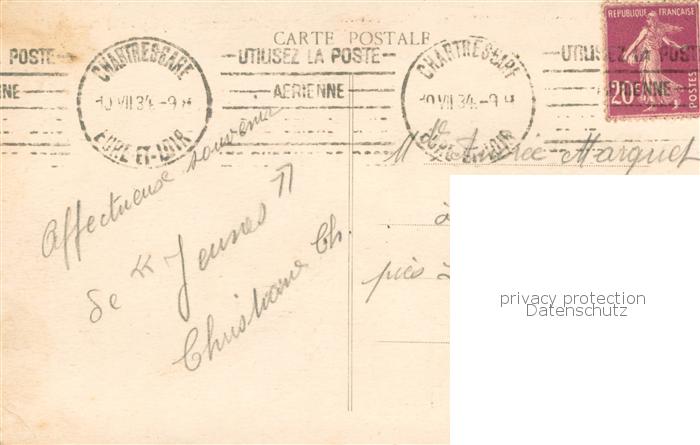 CARTE POSTALE
RÉPUBLIQUE FRANÇAISE
20c
POSTES
LA POSTE
UTILISEZ LA POSTE
UTILISEZ LA POSTE
AERIENNE
AERIENNE
CHARTRES GARE
10 VII 34 - 9 H
EURE-ET-LOIR
CHARTRES GARE
10 VII 34 - 9 H
EURE-ET-LOIR
Affectueux souvenir
de « Jeunes »
Christiane Ch.
Marquet
à
près
privacy protection
Datenschutz